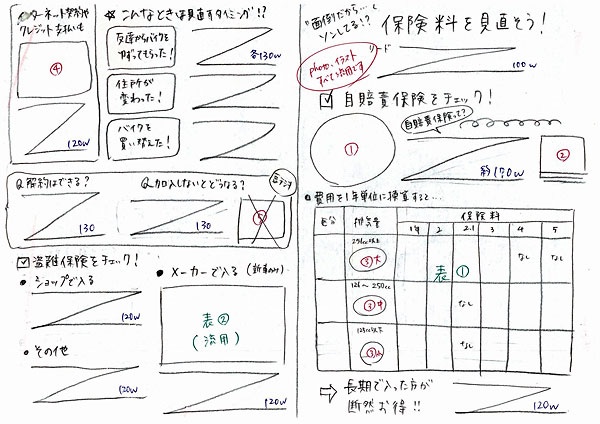 "面倒だから…で
ソンしてる!?
保険料を見直そう!
リード
100w
photo、イラスト
すべて流用です
☑ 自賠責保険をチェック!
自賠責保険って?
①
約170w
②
費用を1年単位に換算すると…
区分
排気量
保険料
1年
2
2.1
3
4
5
251cc以上
③大
なし
なし
表①
126〜250cc
③中
なし
125cc以下
③小
なし
⇨ 長期で入った方が
断然お得!!
120w
ターネット契約や
クレジット支払いも
④
120w
☆ こんなときは見直すタイミング!?
友達からバイクを
ゆずってもらった!
各130w
住所が
変わった!
バイクを
買い替えた!
Q.解約はできる?
130
Q.加入しないとどうなる?
130
⑤
☑ 盗難保険をチェック!
● ショップで入る
120w
● その他
120w
● メーカーで入る(新車のみ)
表②
(流用)
120w